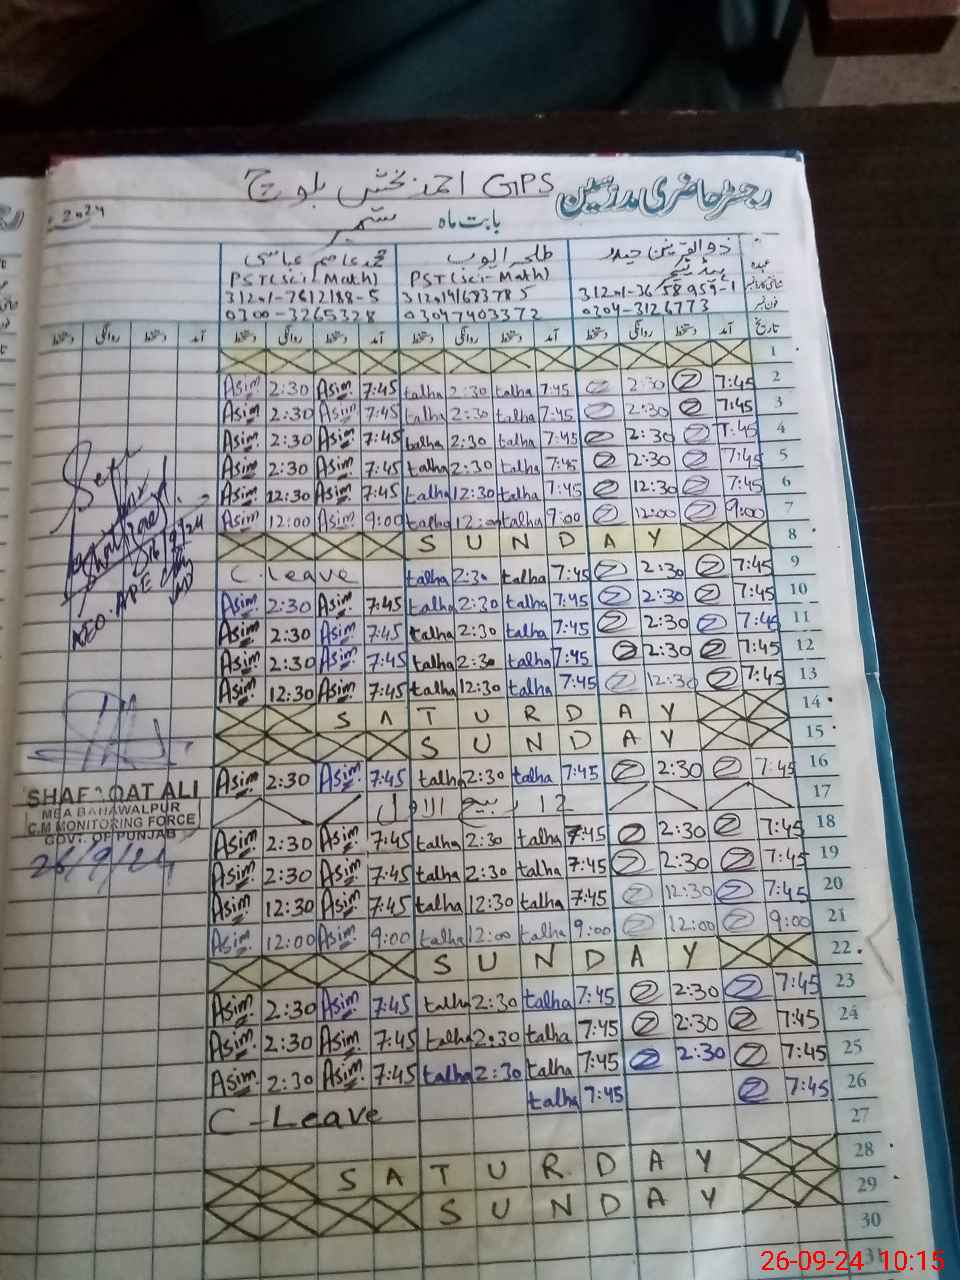 رجسٹر حاضری مدرسین GPS احمد بخش بلوچ
بابت ماہ ستمبر 2024
عہدہ ذوالقرنین حیدر طلحہ ایوب محمد عاصم عباسی
ہیڈ ٹیچر PST(Sci-Math) PST(Sci-Math)
31201-3658959-1 31201-7612188-5
فون نمبر 0304-3126773 03047403372 0300-3265328
تاریخ آمد دستخط روانگی دستخط آمد دستخط روانگی دستخط آمد دستخط روانگی دستخط آمد دستخط روانگی دستخط
1
Asim 2:30 Asim 7:45 talha 2:30 talha 7:45 2:30 7:45 2
Asim 2:30 Asim 7:45 talha 2:30 talha 7:45 2:30 7:45 3
Asim 2:30 Asim 7:45 talha 2:30 talha 7:45 2:30 7:45 4
Asim 2:30 Asim 7:45 talha 2:30 talha 7:45 2:30 7:45 5
Asim 12:30 Asim 7:45 talha 12:30 talha 7:45 12:30 7:45 6
Asim 12:00 Asim 9:00 talha 12:00 talha 9:00 12:00 9:00 7
SUNDAY 8
C.Leave talha 2:30 talha 7:45 2:30 7:45 9
Asim 2:30 Asim 7:45 talha 2:30 talha 7:45 2:30 7:45 10
Asim 2:30 Asim 7:45 talha 2:30 talha 7:45 2:30 7:45 11
Asim 2:30 Asim 7:45 talha 2:30 talha 7:45 2:30 7:45 12
Asim 12:30 Asim 7:45 talha 12:30 talha 7:45 12:30 7:45 13
SATURDAY 14
SUNDAY 15
Asim 2:30 Asim 7:45 talha 2:30 talha 7:45 2:30 7:45 16
12 ربیع الاول 17
Asim 2:30 Asim 7:45 talha 2:30 talha 7:45 2:30 7:45 18
Asim 2:30 Asim 7:45 talha 2:30 talha 7:45 2:30 7:45 19
Asim 12:30 Asim 7:45 talha 12:30 talha 7:45 12:30 7:45 20
Asim 12:00 Asim 9:00 talha 12:00 talha 9:00 12:00 9:00 21
SUNDAY 22
Asim 2:30 Asim 7:45 talha 2:30 talha 7:45 2:30 7:45 23
Asim 2:30 Asim 7:45 talha 2:30 talha 7:45 2:30 7:45 24
Asim 2:30 Asim 7:45 talha 2:30 talha 7:45 2:30 7:45 25
C-Leave talha 7:45 7:45 26
27
SATURDAY 28
SUNDAY 29
30
31
AEO APE
SHAFQAT ALI
MEA BAHAWALPUR
C.M MONITORING FORCE
GOVT. OF PUNJAB
26/9/24
26-09-24 10:15